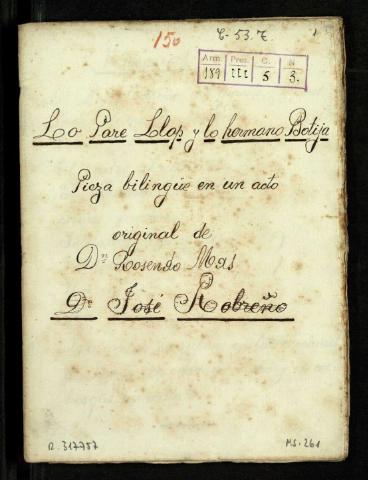 150
C-53.7
Arm. Pres. C. N
189 III 5 3.
Lo Pare Llop y lo hermano Botija
Pieza bilingüe en un acto
original de
Dn Rosendo Mas
Dn José Robreño
R. 317757
MS. 261